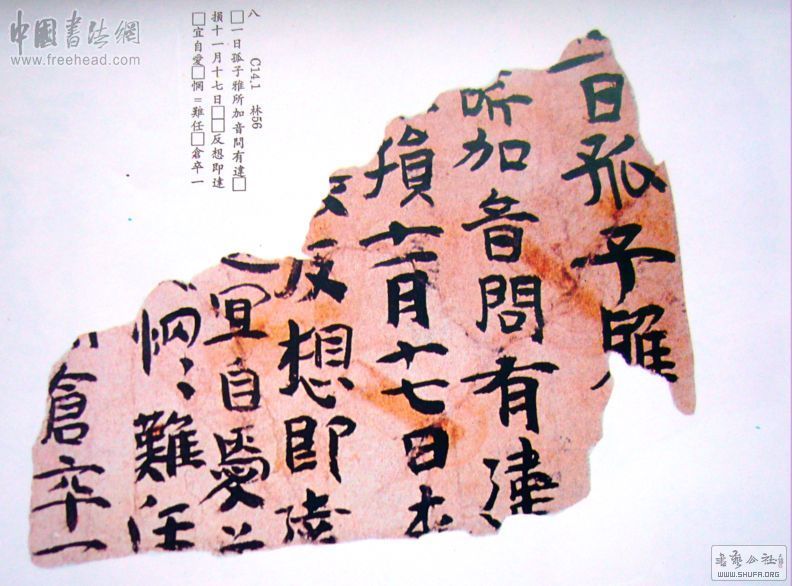 中国书法網
www.freehead.com
八 C14.1 林56
□一日孤子雅所加音問有違□
損十一月十七日□□反想即達
□宜自愛□惘=難任□倉卒一
一日孤子雅
所加音問有違
損十一月十七日
反想即
宜自愛
惘〻難任
倉卒一
书艺公社
WWW.SHUFA.ORG